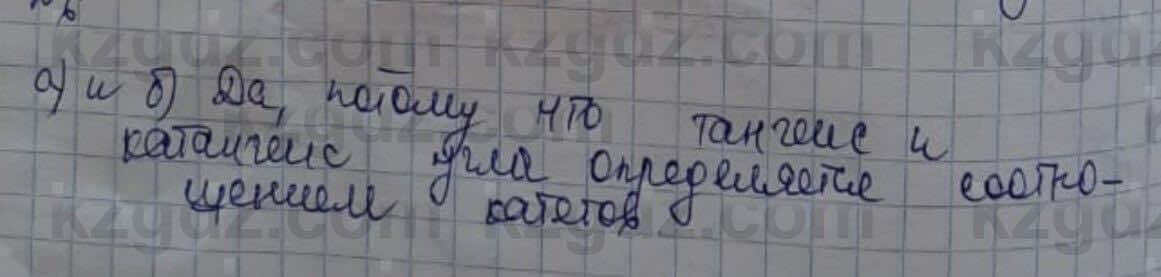 а) и б) Да, потому что тангенс и
катангенс угла определяется соотно-
шением катетов